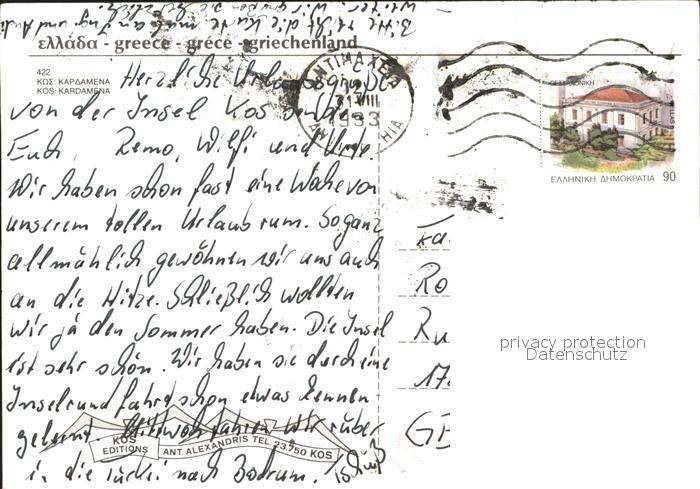 ελλάδα - greece - grèce - griechenland
422
ΚΩΣ: ΚΑΡΔΑΜΕΝΑ
KOS: KARDAMENA
Herzliche Urlaubsgrüße
von der Insel Kos senden
Euch, Remo, Wilfi und
Wir haben schon fast eine Woche von
unserem tollen Urlaub rum. So ganz
allmählich gewöhnen wir uns auch
an die Hitze. Schließlich wollten
wir ja den Sommer haben. Die Insel
ist sehr schön. Wir haben sie durch eine
Inselrundfahrt schon etwas kennen-
gelernt. Mittwoch fahren wir rüber
in die Türkei nach Bodrum. Tschüß
KOS
EDITIONS
ANT. ALEXANDRIS TEL 23.750 KOS
ΑΝΤΙΜΑΧΕΙΑ
VIII
1993
ΘΕΣΣΑΛΟΝΙΚΗ
HELLAS
ΕΛΛΗΝΙΚΗ ΔΗΜΟΚΡΑΤΙΑ 90
Fa
Ro
Ru
17
GE
privacy protection
Datenschutz